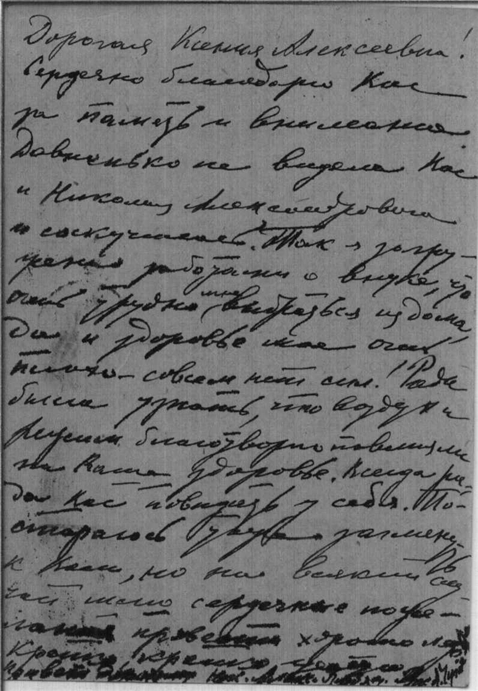 Дорогая Ксения Алексеевна!
Сердечно благодарю Вас
за память и внимание.
Давненько не видела Вас
и Николая Александровича
и соскучилась. Так я загру-
жена заботами о внуке, что
очень трудно мне выбраться из дома,
да и здоровье мое очень
плохо – совсем нет сил! Рада
была узнать, что воздух и
благотворно повлияли
на Ваше здоровье. Всегда ра-
да Вас повидать у себя. По-
стараюсь заглянуть
к Вам, но на всякий слу-
чай шлю сердечные поже-
лания провести хорошо лето
Крепко крепко целую
Привет